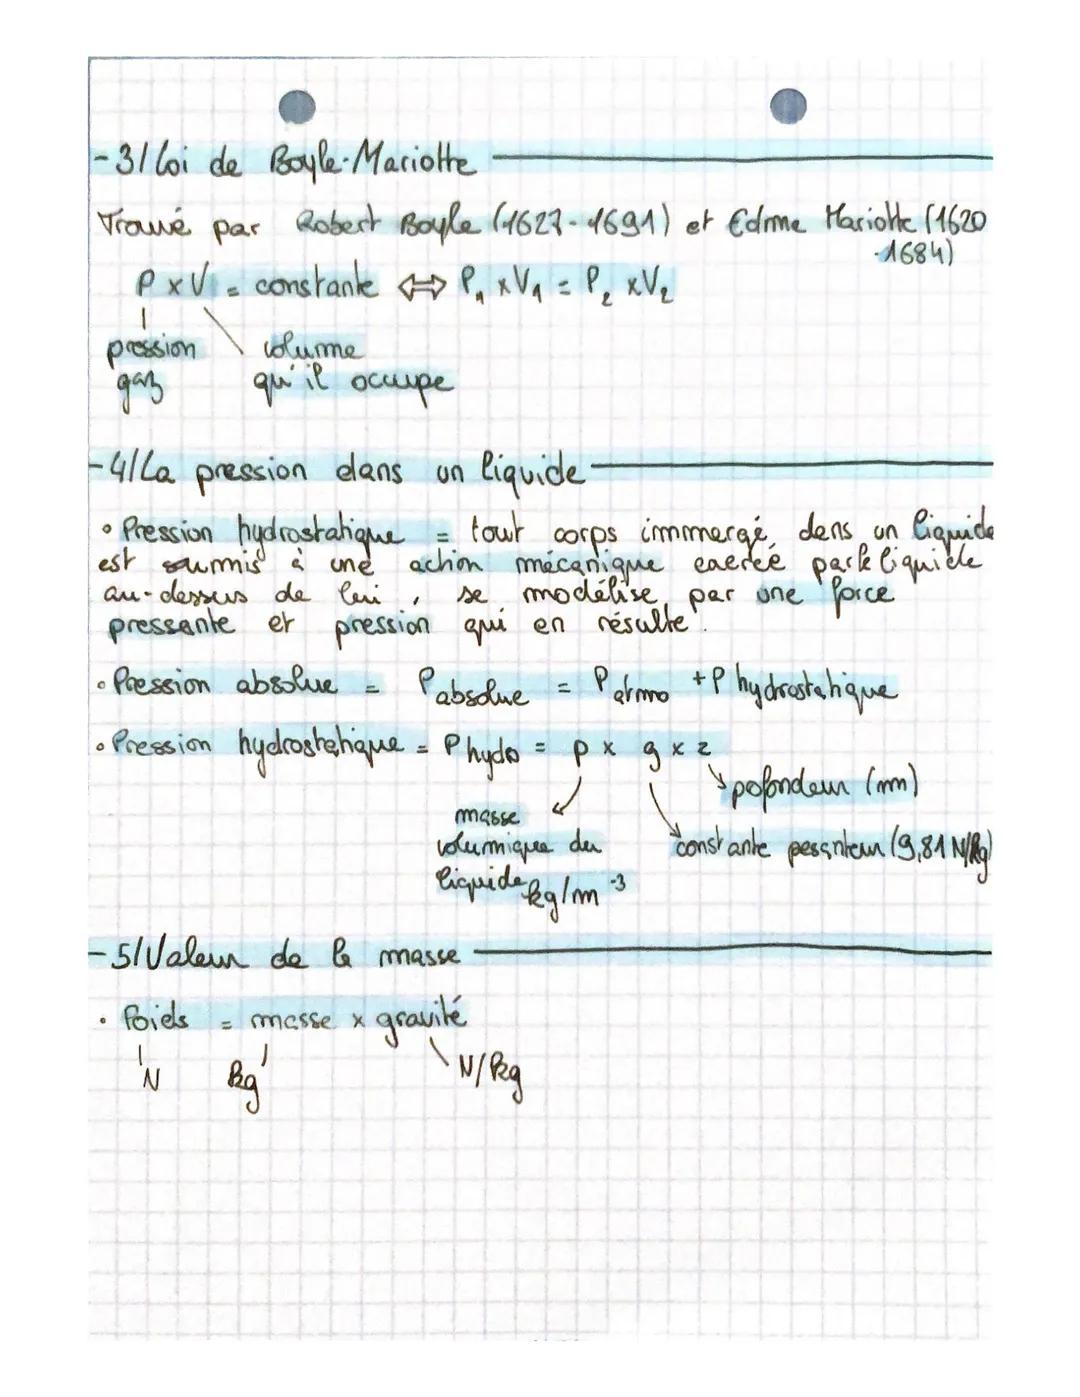 -3/ Loi de Boyle-Mariotte
Trouvé par Robert Boyle (1627-1691) et Edme Mariotte (1620
-1684)
P x V = constante ⇔ P₁ x V₁ = P₂ x V₂
pression volume
gaz qu'il occupe
-4/ La pression dans un liquide
• Pression hydrostatique = tout corps immergé, dans un liquide
est soumis à une action mécanique exercée par le liquide
au-dessus de lui, se modélise par une force
pressante et pression qui en résulte.
• Pression absolue = P absolue = P atmo + P hydrostatique
• Pression hydrostatique = P hydo = ρ x g x z
pofondeur (m)
masse
volumique du constante pesanteur (9,81 N/kg)
liquide kg/m⁻³
-5/ Valeur de la masse
• Poids = masse x gravité
N kg N/kg